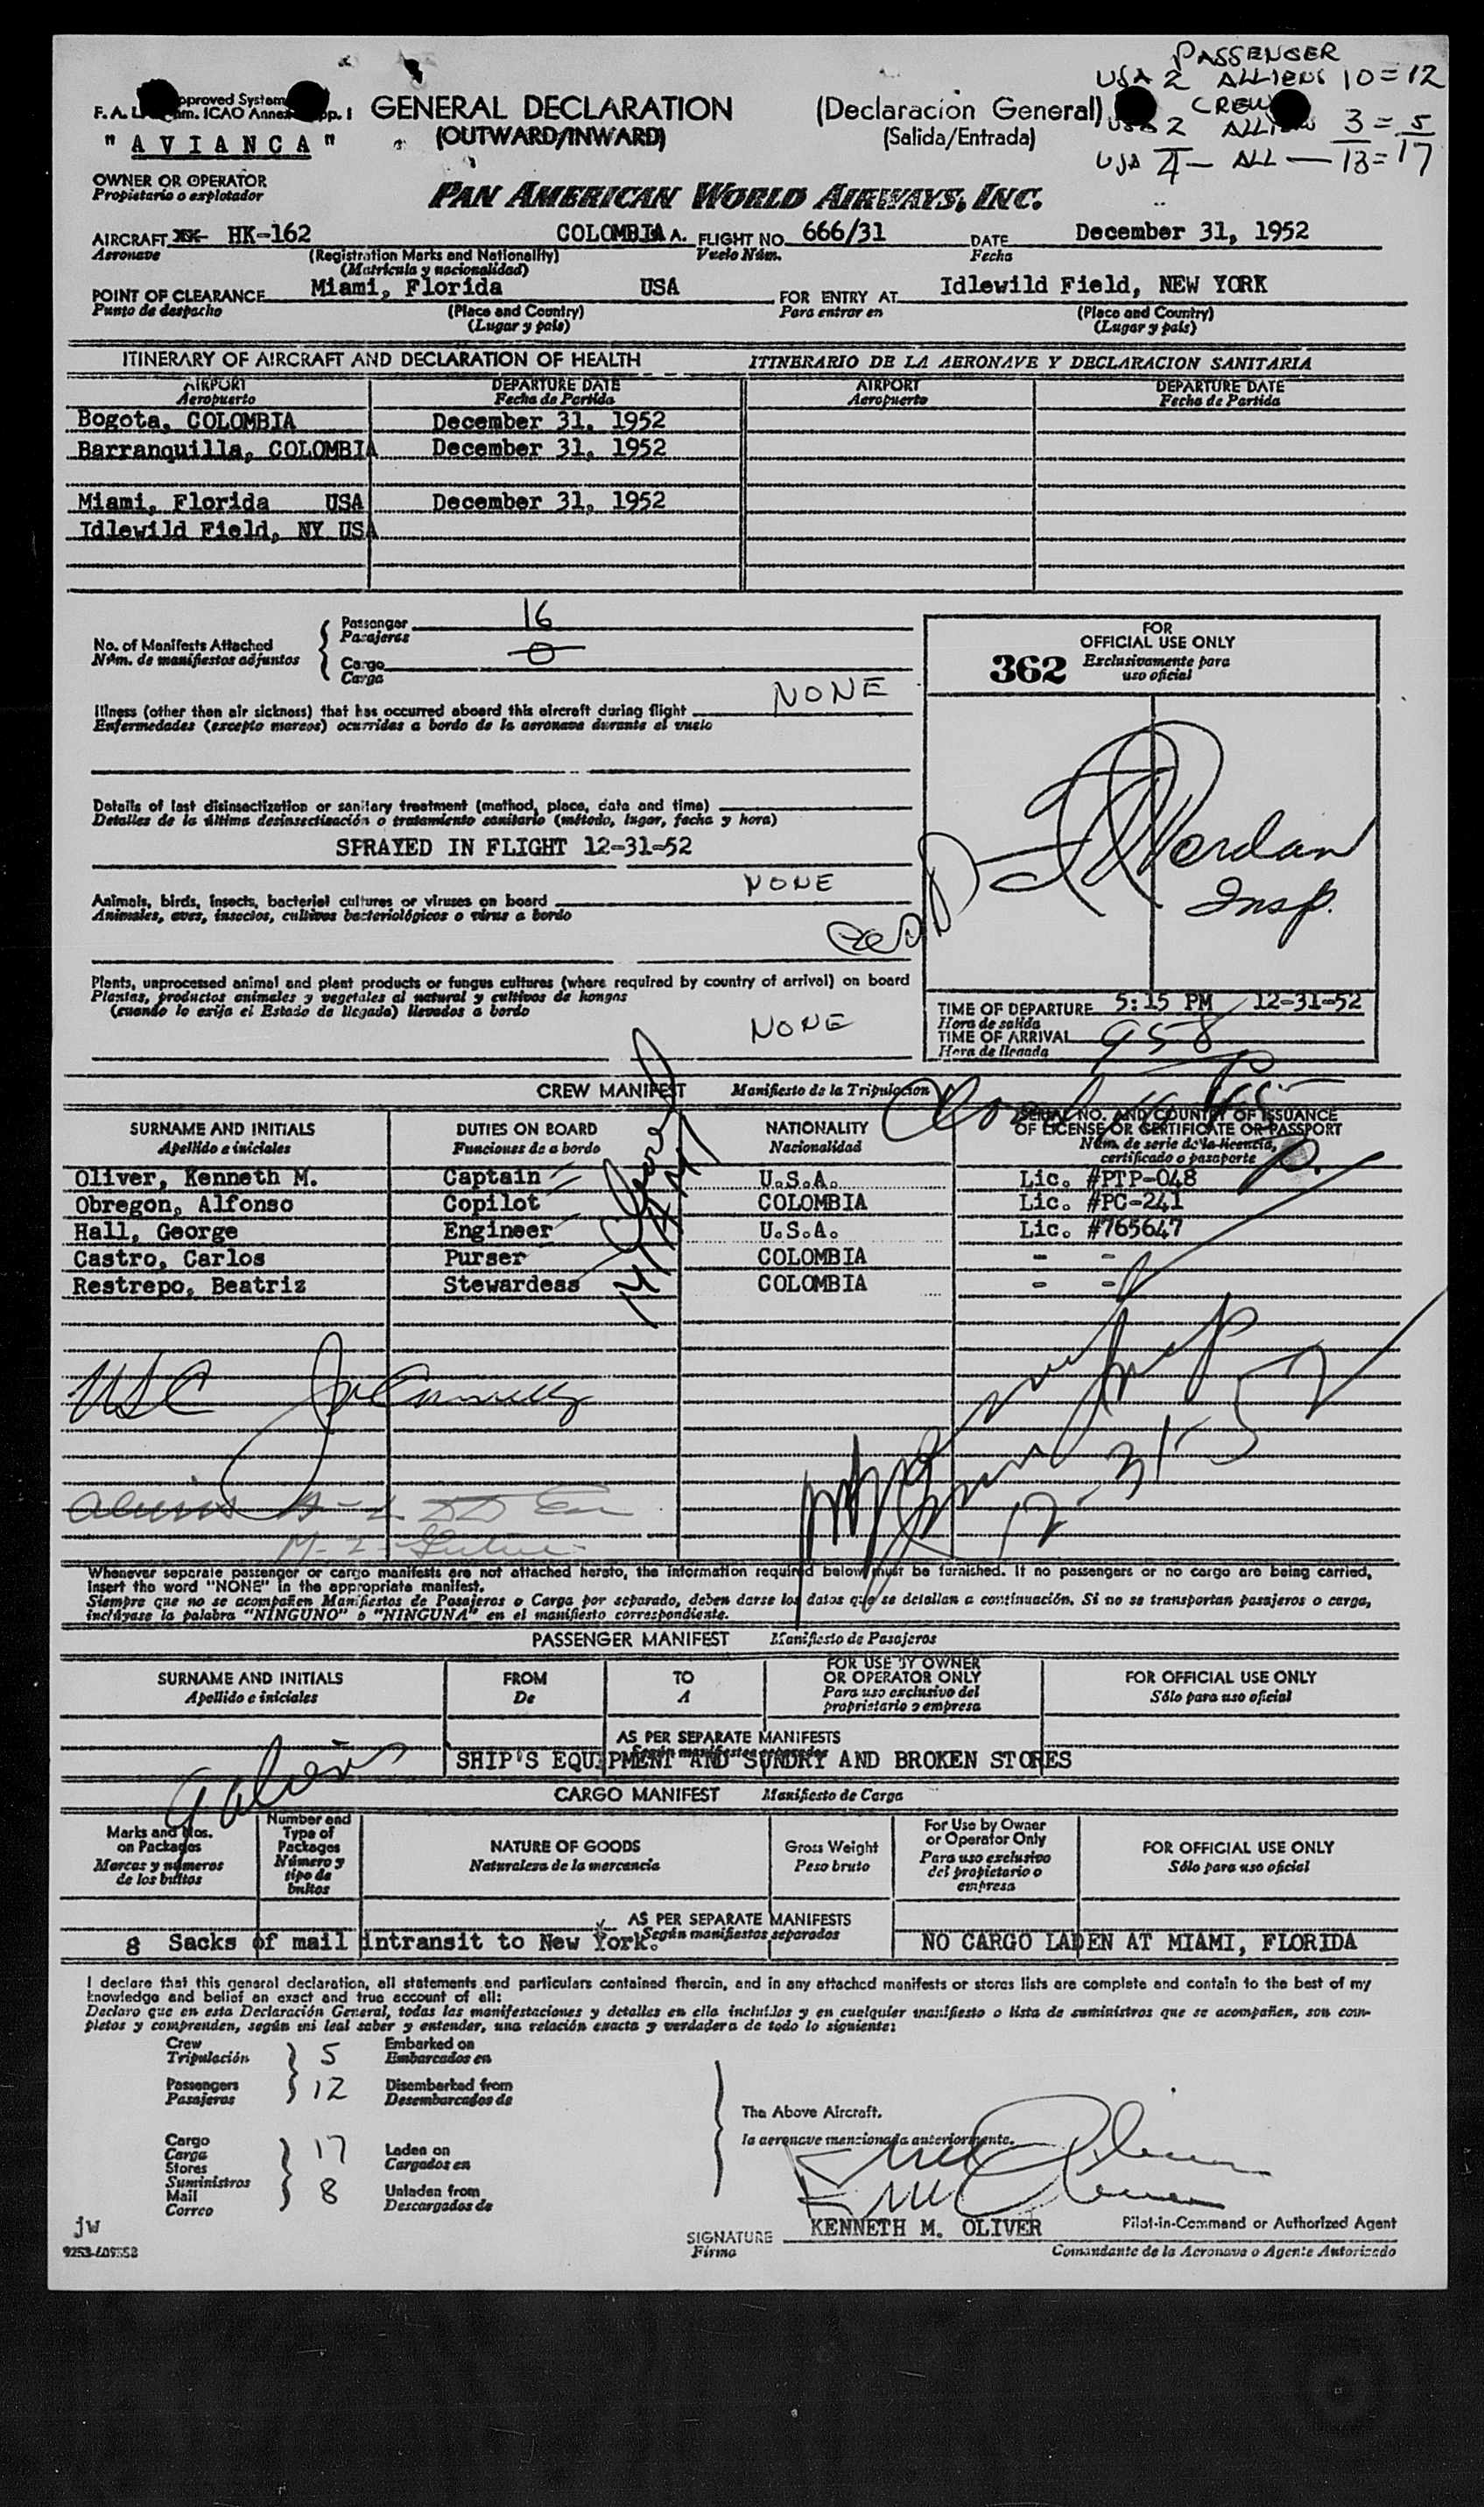 PASSENGER
USA 2 ALLIENS 10 = 12
CREW
2 3 = 5
USA 4 — ALL — 13 = 17
F. A. L. pproved System
m. ICAO Annex pp. 1
GENERAL DECLARATION (Declaración General)
(OUTWARD/INWARD) (Salida/Entrada)
" A V I A N C A "
OWNER OR OPERATOR
Propietario o explotador
PAN AMERICAN WORLD AIRWAYS, INC.
AIRCRAFT HK-162 COLOMBIA A. FLIGHT NO. 666/31 DATE December 31, 1952
Aeronave (Registration Marks and Nationality) Vuelo Núm. Fecha
(Matrícula y nacionalidad)
POINT OF CLEARANCE Miami, Florida USA FOR ENTRY AT Idlewild Field, NEW YORK
Punto de despacho (Place and Country) Para entrar en (Place and Country)
(Lugar y país) (Lugar y país)
ITINERARY OF AIRCRAFT AND DECLARATION OF HEALTH ITINERARIO DE LA AERONAVE Y DECLARACION SANITARIA
AIRPORT DEPARTURE DATE AIRPORT DEPARTURE DATE
Aeropuerto Fecha de Partida Aeropuerto Fecha de Partida
Bogota, COLOMBIA December 31, 1952
Barranquilla, COLOMBIA December 31, 1952
Miami, Florida USA December 31, 1952
Idlewild Field, NY USA
No. of Manifests Attached
Núm. de manifiestos adjuntos
Passenger 16
Pasajeros
Cargo 0
Carga
FOR
OFFICIAL USE ONLY
362 Exclusivamente para
uso oficial
Illness (other than air sickness) that has occurred aboard this aircraft during flight NONE
Enfermedades (excepto mareos) ocurridas a bordo de la aeronave durante el vuelo
Details of last disinsectization or sanitary treatment (method, place, date and time)
Detalles de la última desinsectisación o tratamiento sanitario (método, lugar, fecha y hora)
SPRAYED IN FLIGHT 12-31-52
Insp.
Animals, birds, insects, bacterial cultures or viruses on board NONE
Animales, aves, insectos, cultivos bacteriológicos o virus a bordo
Plants, unprocessed animal and plant products or fungus cultures (where required by country of arrival) on board
Plantas, productos animales y vegetales al natural y cultivos de hongos
(cuando lo exija el Estado de llegada) llevados a bordo
NONE
TIME OF DEPARTURE 5:15 PM 12-31-52
Hora de salida
TIME OF ARRIVAL 958
Hora de llegada
CREW MANIFEST Manifiesto de la Tripulacion
SURNAME AND INITIALS DUTIES ON BOARD NATIONALITY SERIAL NO. AND COUNTRY OF ISSUANCE
OF LICENSE OR CERTIFICATE OR PASSPORT
Apellido e iniciales Funciones de a bordo Nacionalidad Núm. de serie de la licencia,
certificado o pasaporte
Oliver, Kenneth M. Captain U.S.A. Lic. #PTP-048
Obregon, Alfonso Copilot COLOMBIA Lic. #PC-241
Hall, George Engineer U.S.A. Lic. #765647
Castro, Carlos Purser COLOMBIA - -
Restrepo, Beatriz Stewardess COLOMBIA - -
USC
12-31-52
Whenever separate passenger or cargo manifests are not attached hereto, the information required below must be furnished. If no passengers or no cargo are being carried,
insert the word "NONE" in the appropriate manifest.
Siempre que no se acompañen Manifiestos de Pasajeros o Carga por separado, deben darse los datos que se detallan a continuación. Si no se transportan pasajeros o carga,
inclúyase la palabra "NINGUNO" o "NINGUNA" en el manifiesto correspondiente.
PASSENGER MANIFEST Manifiesto de Pasajeros
SURNAME AND INITIALS FROM TO FOR USE BY OWNER
OR OPERATOR ONLY FOR OFFICIAL USE ONLY
Apellido e iniciales De A Para uso exclusivo del
propriatario o empresa Sólo para uso oficial
AS PER SEPARATE MANIFESTS
Según manifiestos separados
SHIP'S EQUIPMENT AND SUNDRY AND BROKEN STORES
CARGO MANIFEST Manifiesto de Carga
Marks and Nos.
on Packages
Marcas y números
de los bultos
Number and
Type of
Packages
Número y
tipo de
bultos
NATURE OF GOODS
Naturaleza de la mercancía
Gross Weight
Peso bruto
For Use by Owner
or Operator Only
Para uso exclusivo
del propietario o
empresa
FOR OFFICIAL USE ONLY
Sólo para uso oficial
AS PER SEPARATE MANIFESTS
Según manifiestos separados
8 Sacks of mail intransit to New York. NO CARGO LADEN AT MIAMI, FLORIDA
I declare that this general declaration, all statements and particulars contained therein, and in any attached manifests or stores lists are complete and contain to the best of my
knowledge and belief an exact and true account of all:
Declaro que en esta Declaración General, todas las manifestaciones y detalles en ella incluidos y en cualquier manifiesto o lista de suministros que se acompañen, son com-
pletos y comprenden, según mi leal saber y entender, una relación exacta y verdadera de todo lo siguiente:
Crew 5 Embarked on
Tripulación Embarcados en
Passengers 12 Disembarked from
Pasajeros Desembarcados de
The Above Aircraft.
la aeronave mencionada anteriormente.
Cargo
Carga 17 Laden on
Stores Cargados en
Suministros
Mail 8 Unladen from
Correo Descargados de
jw
SIGNATURE KENNETH M. OLIVER Pilot-in-Command or Authorized Agent
Firma Comandante de la Aeronave o Agente Autorizado